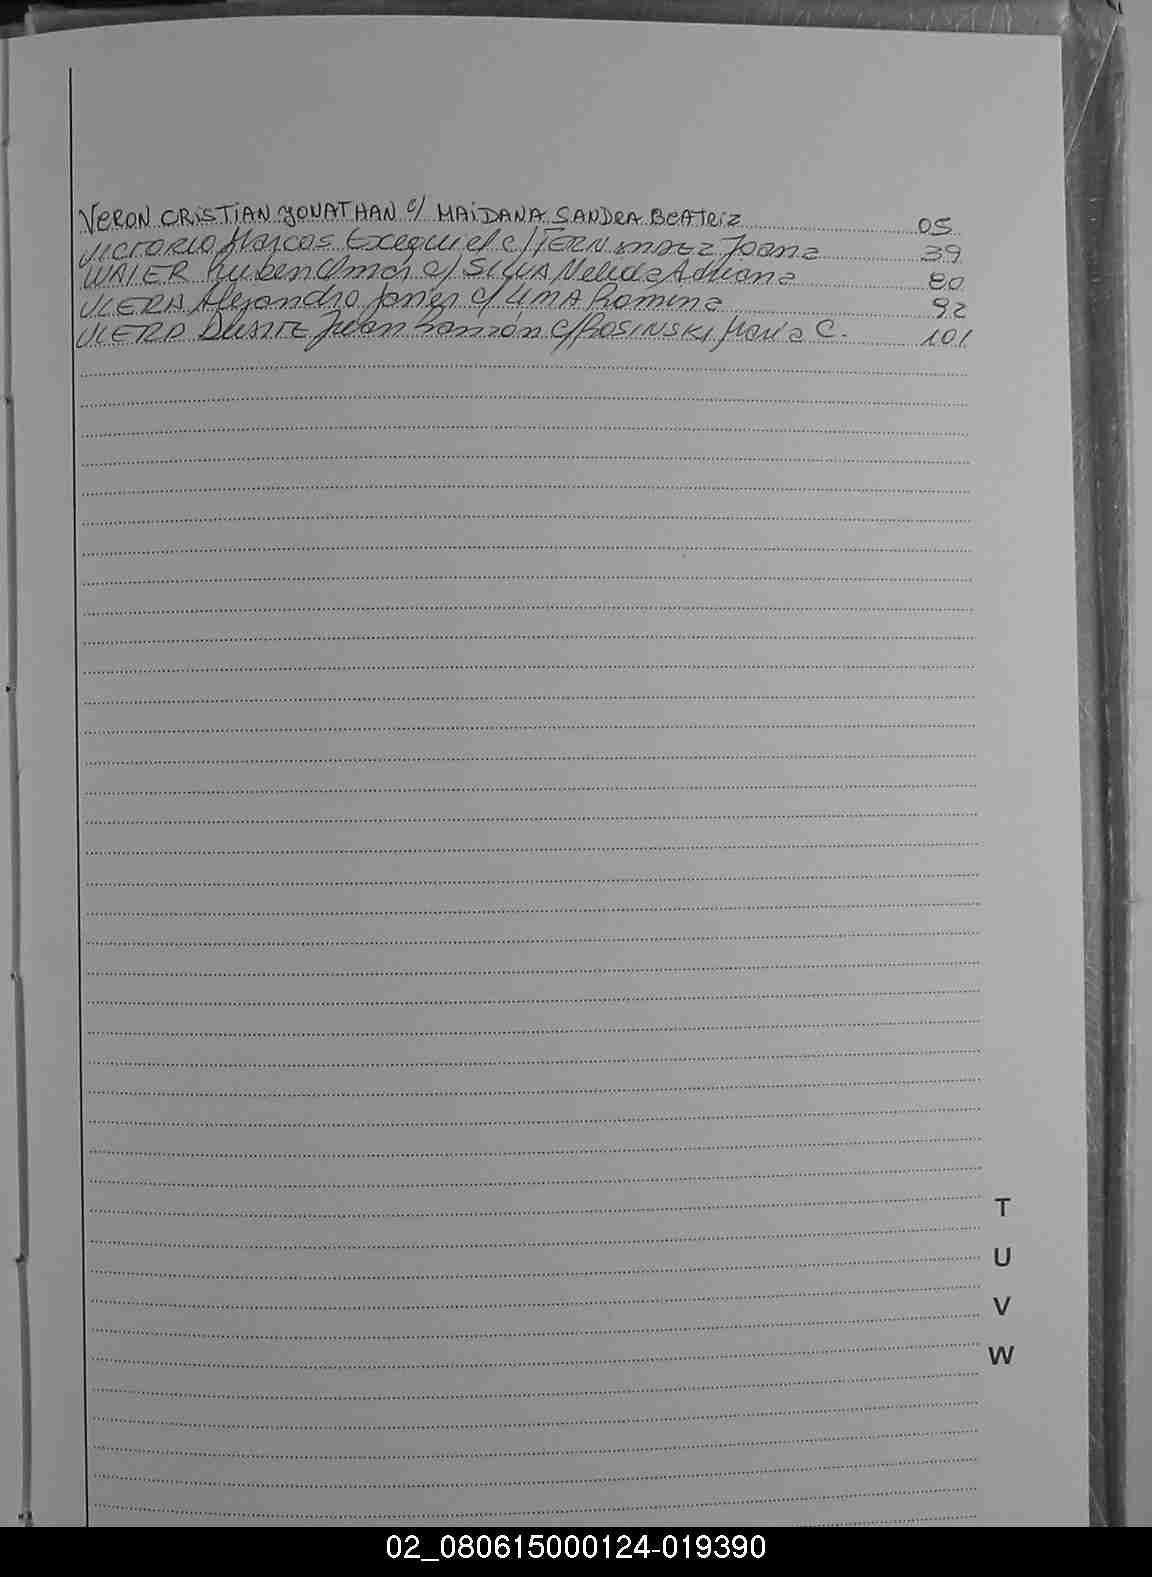 VERON CRISTIAN JONATHAN c/ MAIDANA SANDRA BEATRIZ 05
VICTORIO Marcos Exequiel c/ FERNANDEZ Joana 39
WAIER Ruben Omar c/ SILVA Nelida Adriana 80
VIERA Alejandro Javier c/ LIMA Romina 92
VIERA DUARTE Juan Ramón c/ ROSINSKI María C. 101
T
U
V
W
02_080615000124-019390